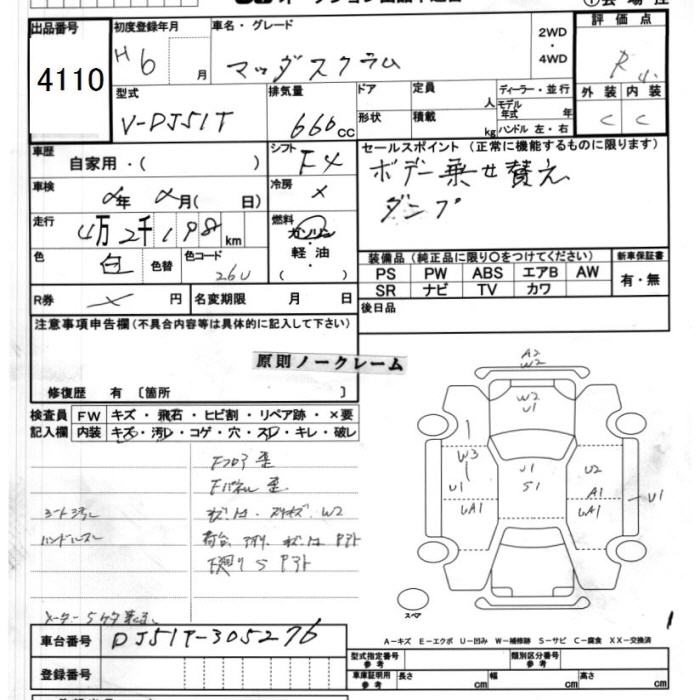 出品番号
4110
初度登録年月
H6 月
車名・グレード
マツダスクラム
2WD
・
4WD
評価点
R
外装 内装
C C
型式
V-DJ51T
排気量
660 cc
ドア
形状
定員 人
積載 kg
ディーラー・並行
モデル年式 年
ハンドル 左・右
車歴
自家用・( )
シフト
F4
セールスポイント (正常に機能するものに限ります)
ボデー乗せ替え
ダンプ
車検
年 月( 日)
冷房
×
走行
4万2千198km
燃料
ガソリン
軽油
( )
色
白
色替
色コード
26U
装備品 (純正品に限り○をつけてください)
新車保証書
PS PW ABS エアB AW
有・無
SR ナビ TV カワ
R券 × 円
名変期限 月 日
後日品
注意事項申告欄 (不具合内容等は具体的に記入して下さい)
原則ノークレーム
修復歴 有 〔箇所 〕
検査員 FW キズ・飛石・ヒビ割・リペア跡・×要
記入欄 内装 キズ・汚レ・コゲ・穴・スレ・キレ・破レ
Fフロア歪
Fパネル歪
シート汚レ
ハンドルスレ
メーター5ケタ表示
A2
W2
W2
U1
W3
U1
UA1
U1
S1
U2
A1
UA1
U1
スペア
1
A-キズ E-エクボ U-凹み W-補修跡 S-サビ C-腐食 XX-交換済
車台番号
DJ51T-305276
登録番号
型式指定番号 参考
類別区分番号 参考
車庫証明用 参考
長さ cm
幅 cm
高さ cm